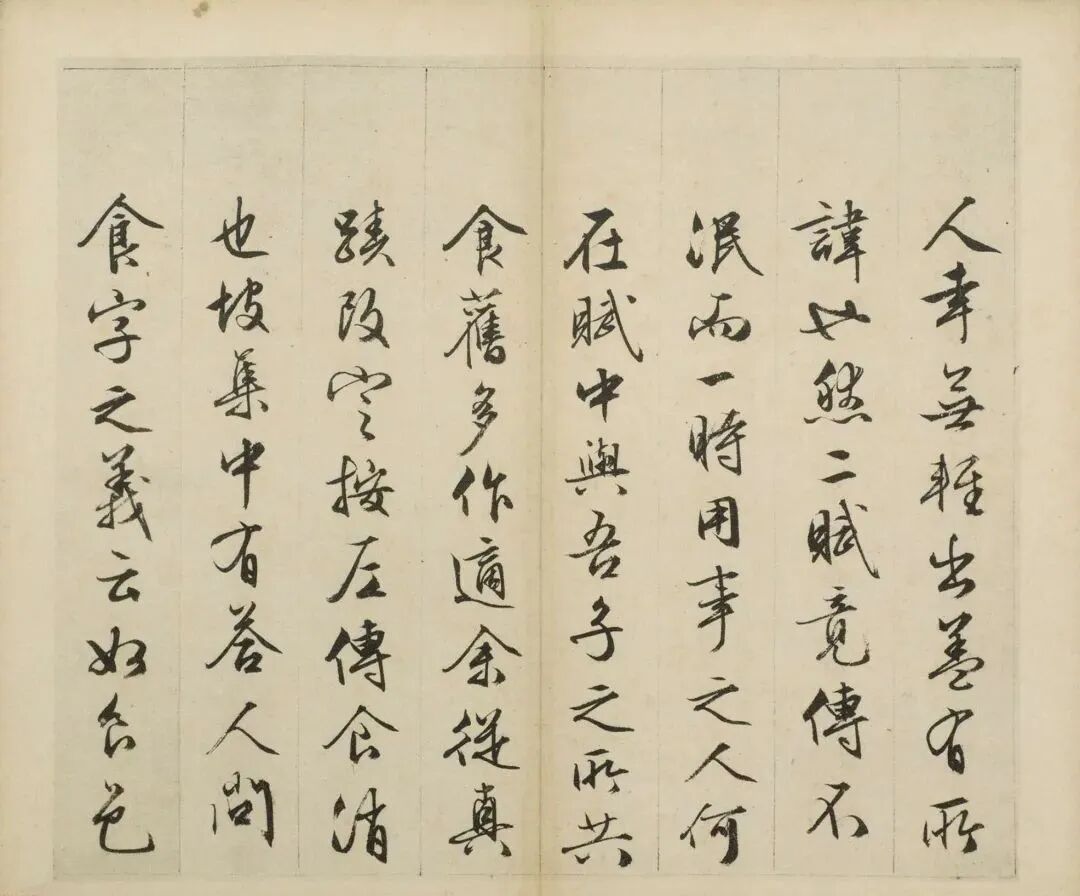 人幸無輕出蓋有所
諱也然二賦竟傳不
泯而一時用事之人何
在賦中與吾子之所共
食舊多作適余從真
蹟改定按左傳食消
也坡集中有答人問
食字之義云如食邑